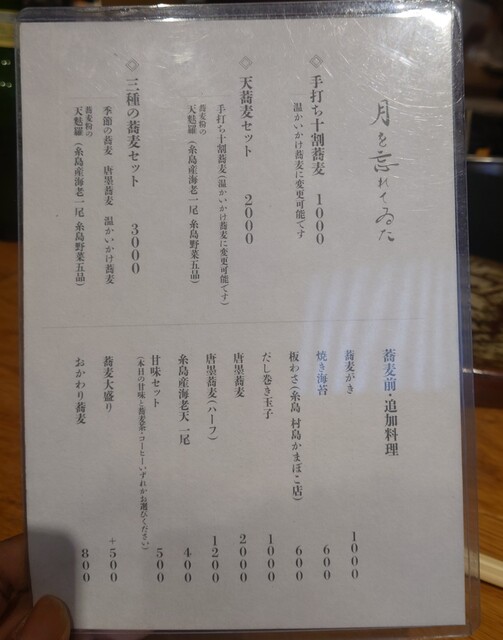 月を忘れてゐた
◇手打ち十割蕎麦 1000
温かいかけ蕎麦に変更可能です
◇天蕎麦セット 2000
手打ち十割蕎麦(温かいかけ蕎麦に変更可能です)
蕎麦粉の
天麩羅(糸島産海老一尾 糸島野菜五品)
◇三種の蕎麦セット 3000
季節の蕎麦 唐墨蕎麦 温かいかけ蕎麦
蕎麦粉の
天麩羅(糸島産海老一尾 糸島野菜五品)
蕎麦前・追加料理
蕎麦がき 1000
焼き海苔 600
板わさ(糸島 村島かまぼこ店) 600
だし巻き玉子 1000
唐墨蕎麦 2000
唐墨蕎麦(ハーフ) 1200
糸島産海老天 一尾 400
甘味セット 500
(本日の甘味と蕎麦茶・コーヒーいずれかお選びください)
蕎麦大盛り +500
おかわり蕎麦 800